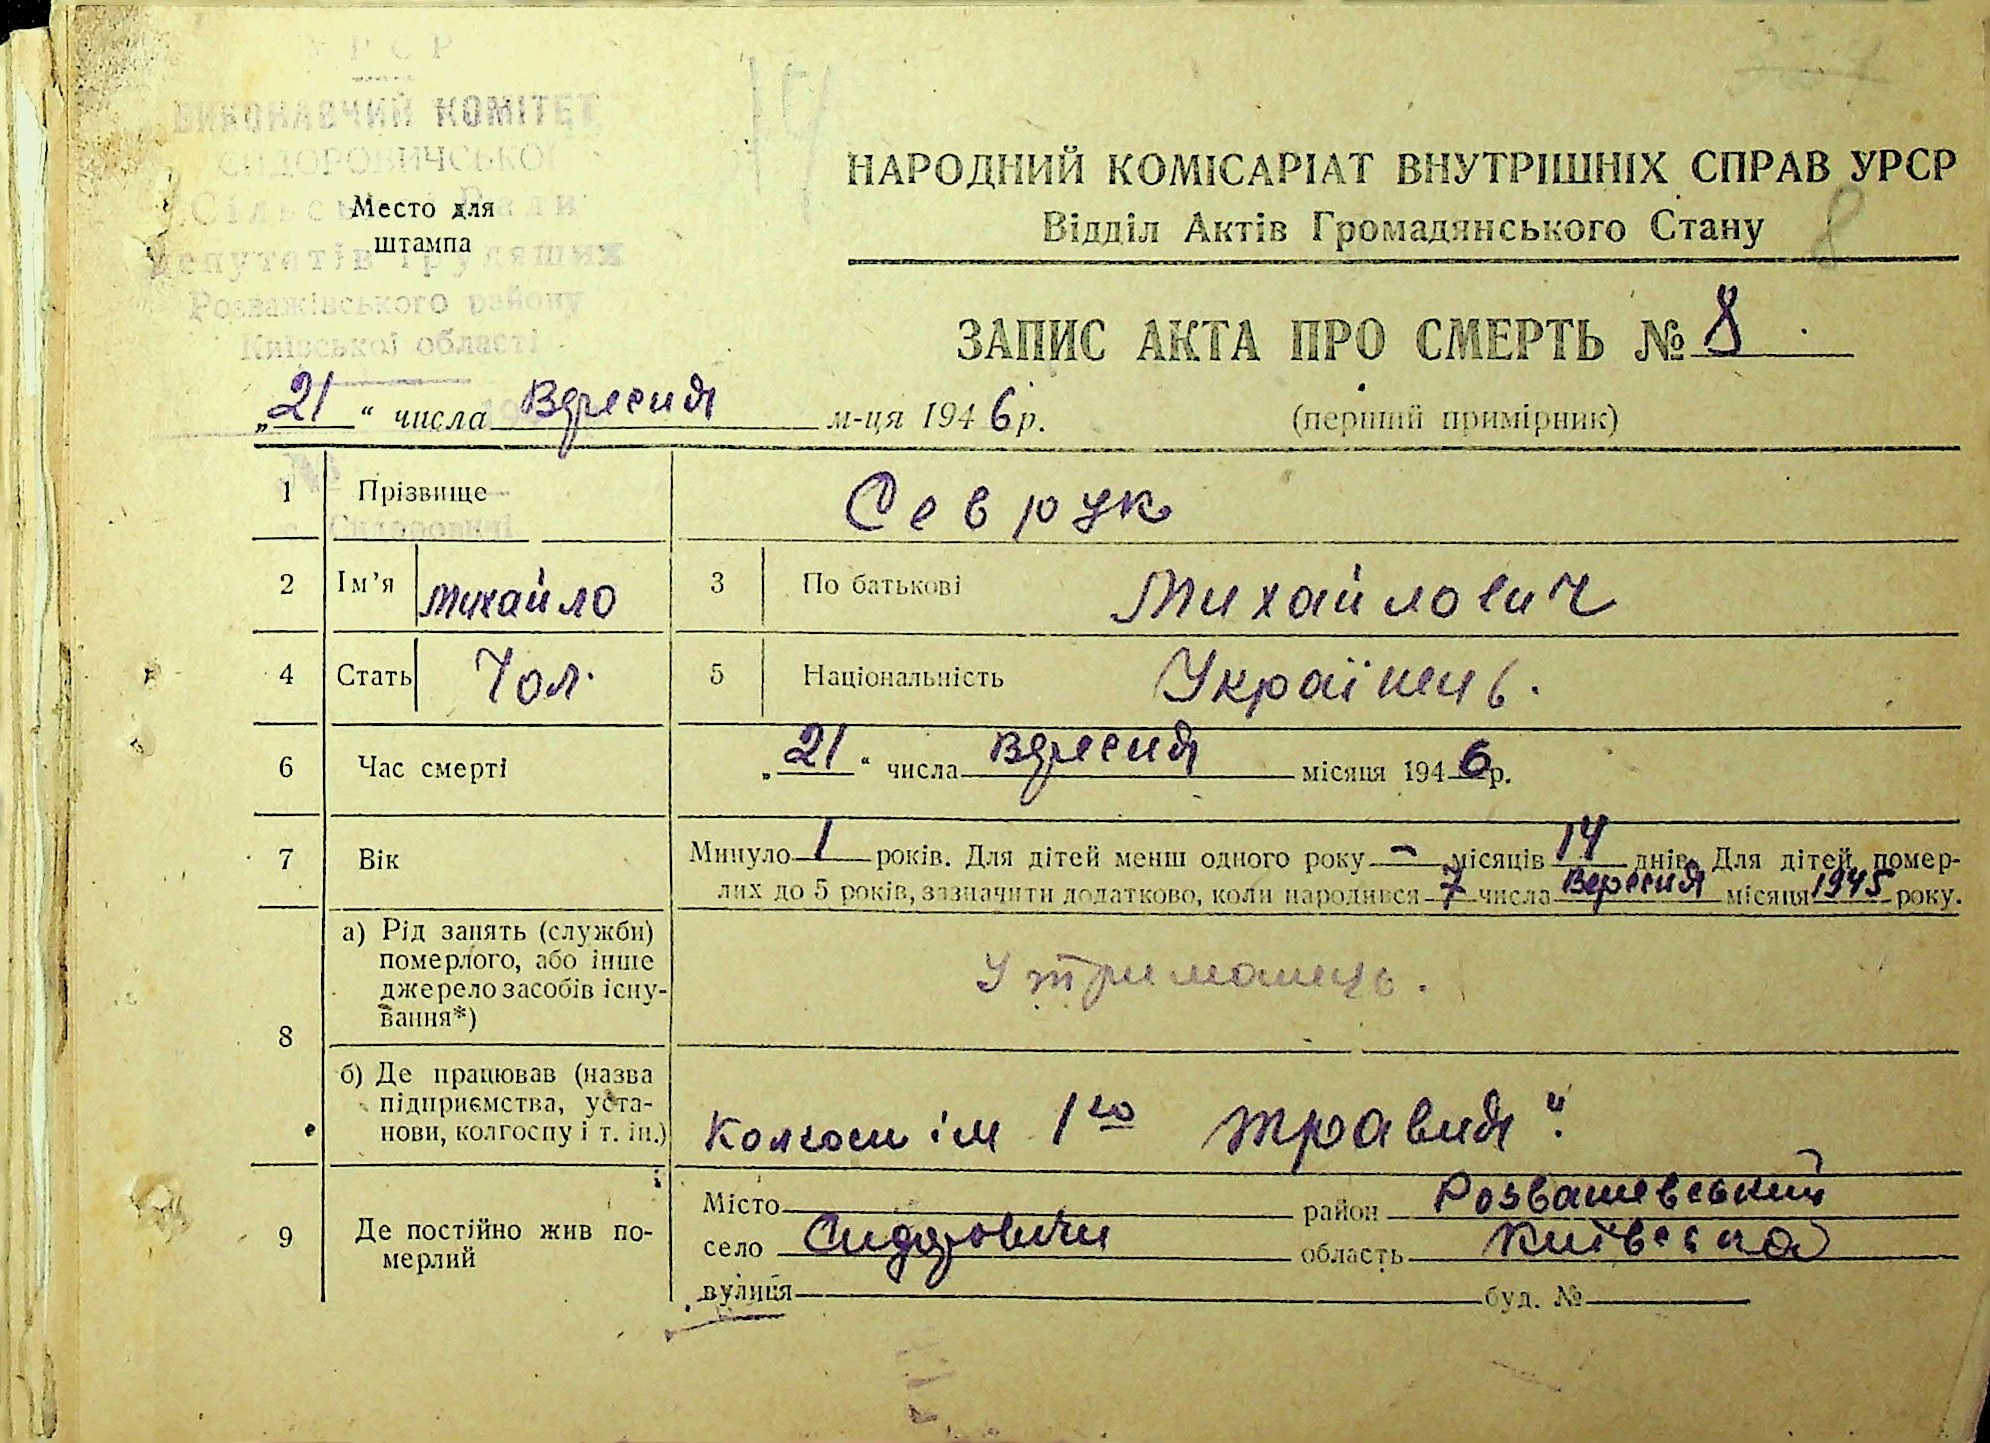 УРСР
ВИКОНАВЧИЙ КОМІТЕТ
СИДОРОВИЧСЬКОЇ
Сільської Ради
депутатів трудящих
Розважівського району
Київської області
Место для
штампа
с. Сидоровичі
НАРОДНИЙ КОМІСАРІАТ ВНУТРІШНІХ СПРАВ УРСР
Відділ Актів Громадянського Стану
8
ЗАПИС АКТА ПРО СМЕРТЬ № 8
„21“ числа Вересня м-ця 1946 р.
(перший примірник)
1 Прізвище Севрук
2 Ім’я Михайло 3 По батькові Михайлович
4 Стать Чол. 5 Національність Українець.
6 Час смерті „21“ числа Вересня місяця 1946 р.
7 Вік Минуло 1 років. Для дітей менш одного року - місяців 14 днів. Для дітей, помер-
лих до 5 років, зазначити додатково, коли народився 7 числа Вересня місяця 1945 року.
8 а) Рід занять (служби)
померлого, або інше
джерело засобів існу-
вання*)
Утриманець.
б) Де працював (назва
підприємства, уста-
нови, колгоспу і т. ін.)
Колгосп ім 1го травня".
9 Де постійно жив по-
мерлий
Місто район Розважевський
село Сидоровичи область Київська
вулиця буд. №